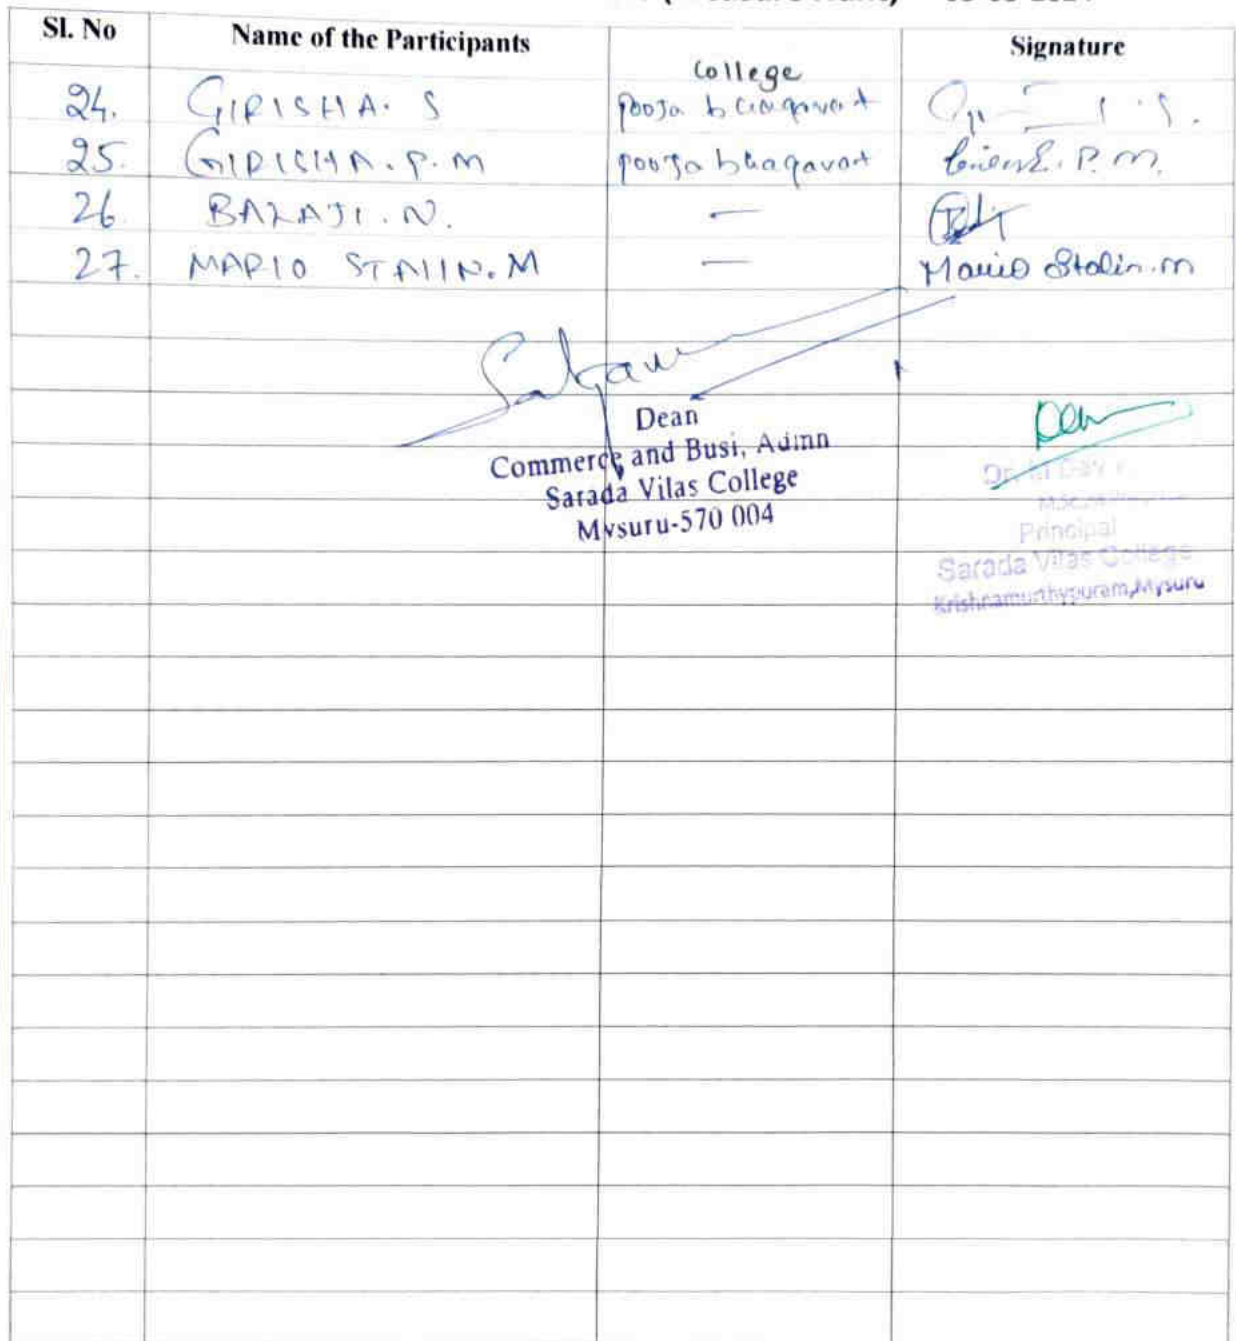 Sl. No Name of the Participants College Signature
24. GIRISHA. S pooja bhagavat
25. GIRISHA. P. M pooja bhagavat P. M.
26. BALAJI. N. —
27. MARIO STALIN. M — Mario Stalin. m
Dean
Commerce and Busi, Admn
Sarada Vilas College
Mysuru-570 004
Principal
Sarada Vilas College
Krishnamurthypuram, Mysuru